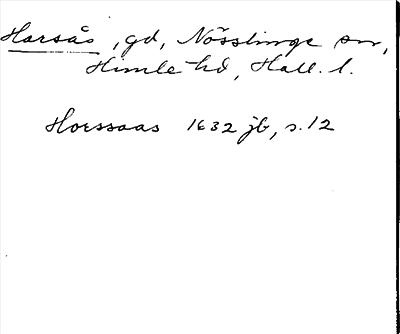 Harsås, gd, Nösslinge sn,
Himle hd, Hall. l.
Horssaas 1632 jb, s. 12